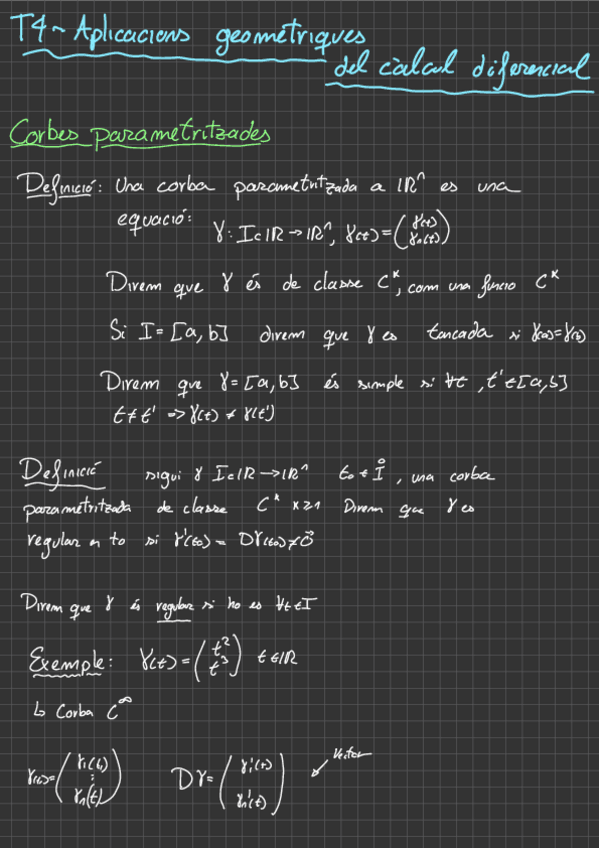 T4~Aplicacions geomètriques
del càlcul diferencial
Corbes parametritzades
Definició: Una corba parametritzada a ℝⁿ es una
equació: γ: I⊂ℝ→ℝⁿ, γ(t)=(γ(t) γn(t))
Direm que γ és de classe Cᵏ, com una funcio Cᵏ
Si I=[a,b] direm que γ es tancada si γ(a)=γ(b)
Direm que γ=[a,b] és simple si ∀t, t'∈[a,b]
t≠t' => γ(t) ≠ γ(t')
Definició sigui γ I⊂ℝ→ℝⁿ t₀∈I̊, una corba
parametritzada de classe Cᵏ k≥1 Direm que γ es
regular en t₀ si γ'(t₀) = Dγ(t₀)≠0⃗
Direm que γ és regular si ho es ∀t∈I
Exemple: γ(t)=(t² t³) t∈ℝ
↳ Corba C^∞
γ(t)=(γ₁(t) ⋮ γn(t)) Dγ=(γ₁'(t) ⋮ γn'(t)) ↙ Vector